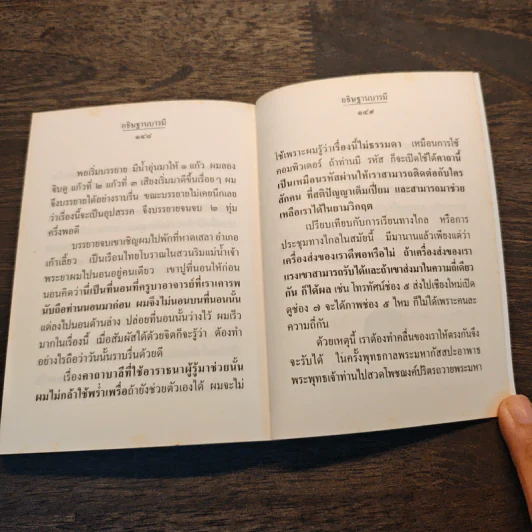 อธิษฐานบารมี
๑๔๘
พอเริ่มบรรยาย มีน้ำอุ่นมาให้ ๑ แก้ว ผมลอง
จิบดู แก้วที่ ๒ แก้วที่ ๓ เสียงเริ่มมาดีขึ้นเรื่อยๆ ผม
จึงบรรยายได้อย่างราบรื่น ขณะบรรยายไม่เคยนึกเลย
ว่าเรื่องนี้จะเป็นอุปสรรค จึงบรรยายจนจบ ๒ ทุ่ม
ครึ่งพอดี
บรรยายจบเขาเชิญผมไปพักที่หาดเสลา อำเภอ
เก้าเลี้ยว เป็นเรือนไทยโบราณในสวนริมแม่น้ำเจ้า
พระยาผมไปนอนอยู่คนเดียว เขาปูที่นอนให้ก่อน
นอนคิดว่านี้เป็นที่นอนที่ครูบาอาจารย์ที่เราเคารพ
นับถือท่านนอนมาก่อน ผมจึงไม่นอนบนที่นอนนั้น
แต่ลงไปนอนด้านล่าง ปล่อยที่นอนนั้นวางไว้ ผมเร็ว
มากในเรื่องนี้ เมื่อสัมผัสได้ด้วยจิตก็จะรู้ว่า ต้องทำ
อย่างไรถือว่าวันนั้นราบรื่นด้วยดี
เรื่องคาถาบาลีที่ใช้อาราธนาผู้รู้มาช่วยนั้น
ผมไม่กล้าใช้พร่ำเพรื่อถ้ายังช่วยตัวเองได้ ผมจะไม่
อธิษฐานบารมี
๑๔๙
ใช้เพราะผมรู้ว่าเรื่องนี้ไม่ธรรมดา เหมือนการใช้
คอมพิวเตอร์ ถ้าท่านมี รหัส ก็จะเปิดใช้ได้คาถานี้
เป็นเหมือนรหัสผ่านให้เราสามารถติดต่อกับใคร
สักคน ที่สติปัญญาเต็มเปี่ยม และสามารถมาช่วย
เหลือเราได้ในยามวิกฤต
เปรียบเทียบกับการเรียนทางไกล หรือการ
ประชุมทางไกลในสมัยนี้ มีมานานแล้วเพียงแต่ว่า
เครื่องส่งของเราดีพอหรือไม่ ถ้าเครื่องส่งของเรา
แรงเขาสามารถรับได้และถ้าเขาส่งมาในความถี่เดียว
กัน ก็ได้ผล เช่น โทรทัศน์ช่อง ๕ ส่งไปเชียงใหม่เปิด
ดูช่อง ๗ จะได้ภาพช่อง ๕ ไหม ก็ไม่ได้เพราะคนละ
ความถี่กัน
ด้วยเหตุนี้ เราต้องทำคลื่นของเราให้ตรงกันจึง
จะรับได้ ในครั้งพุทธกาลพระมหากัสสปะอาพาธ
พระพุทธเจ้าท่านไปสวดโพชฌงค์ปริตรถวายพระมหา